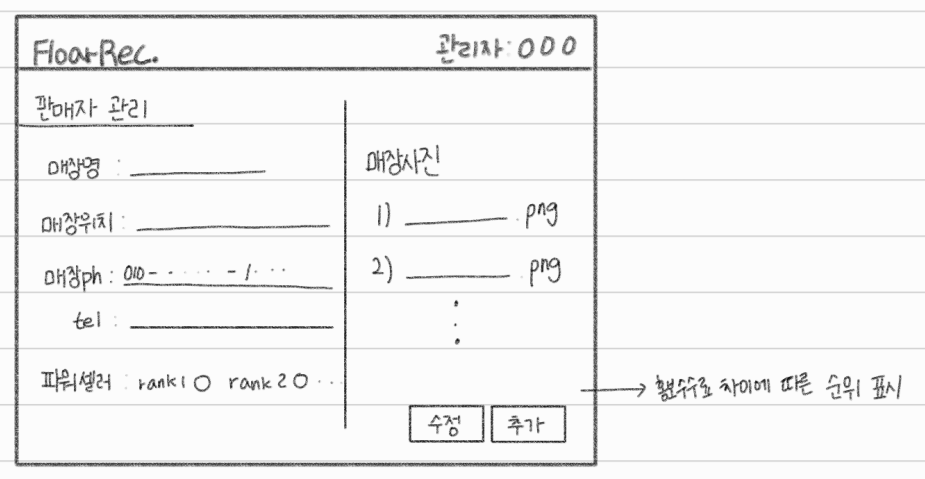 FloarRec.
관리자 : 000
판매자 관리
매장명 :
매장위치 :
매장ph : 010- · · · · · - / · · ·
tel :
파워셀러 : rank1 ○ rank2 ○ · · ·
매장사진
1) .png
2) .png
수정
추가
→ 홍보수수료 차이에 따른 순위 표시